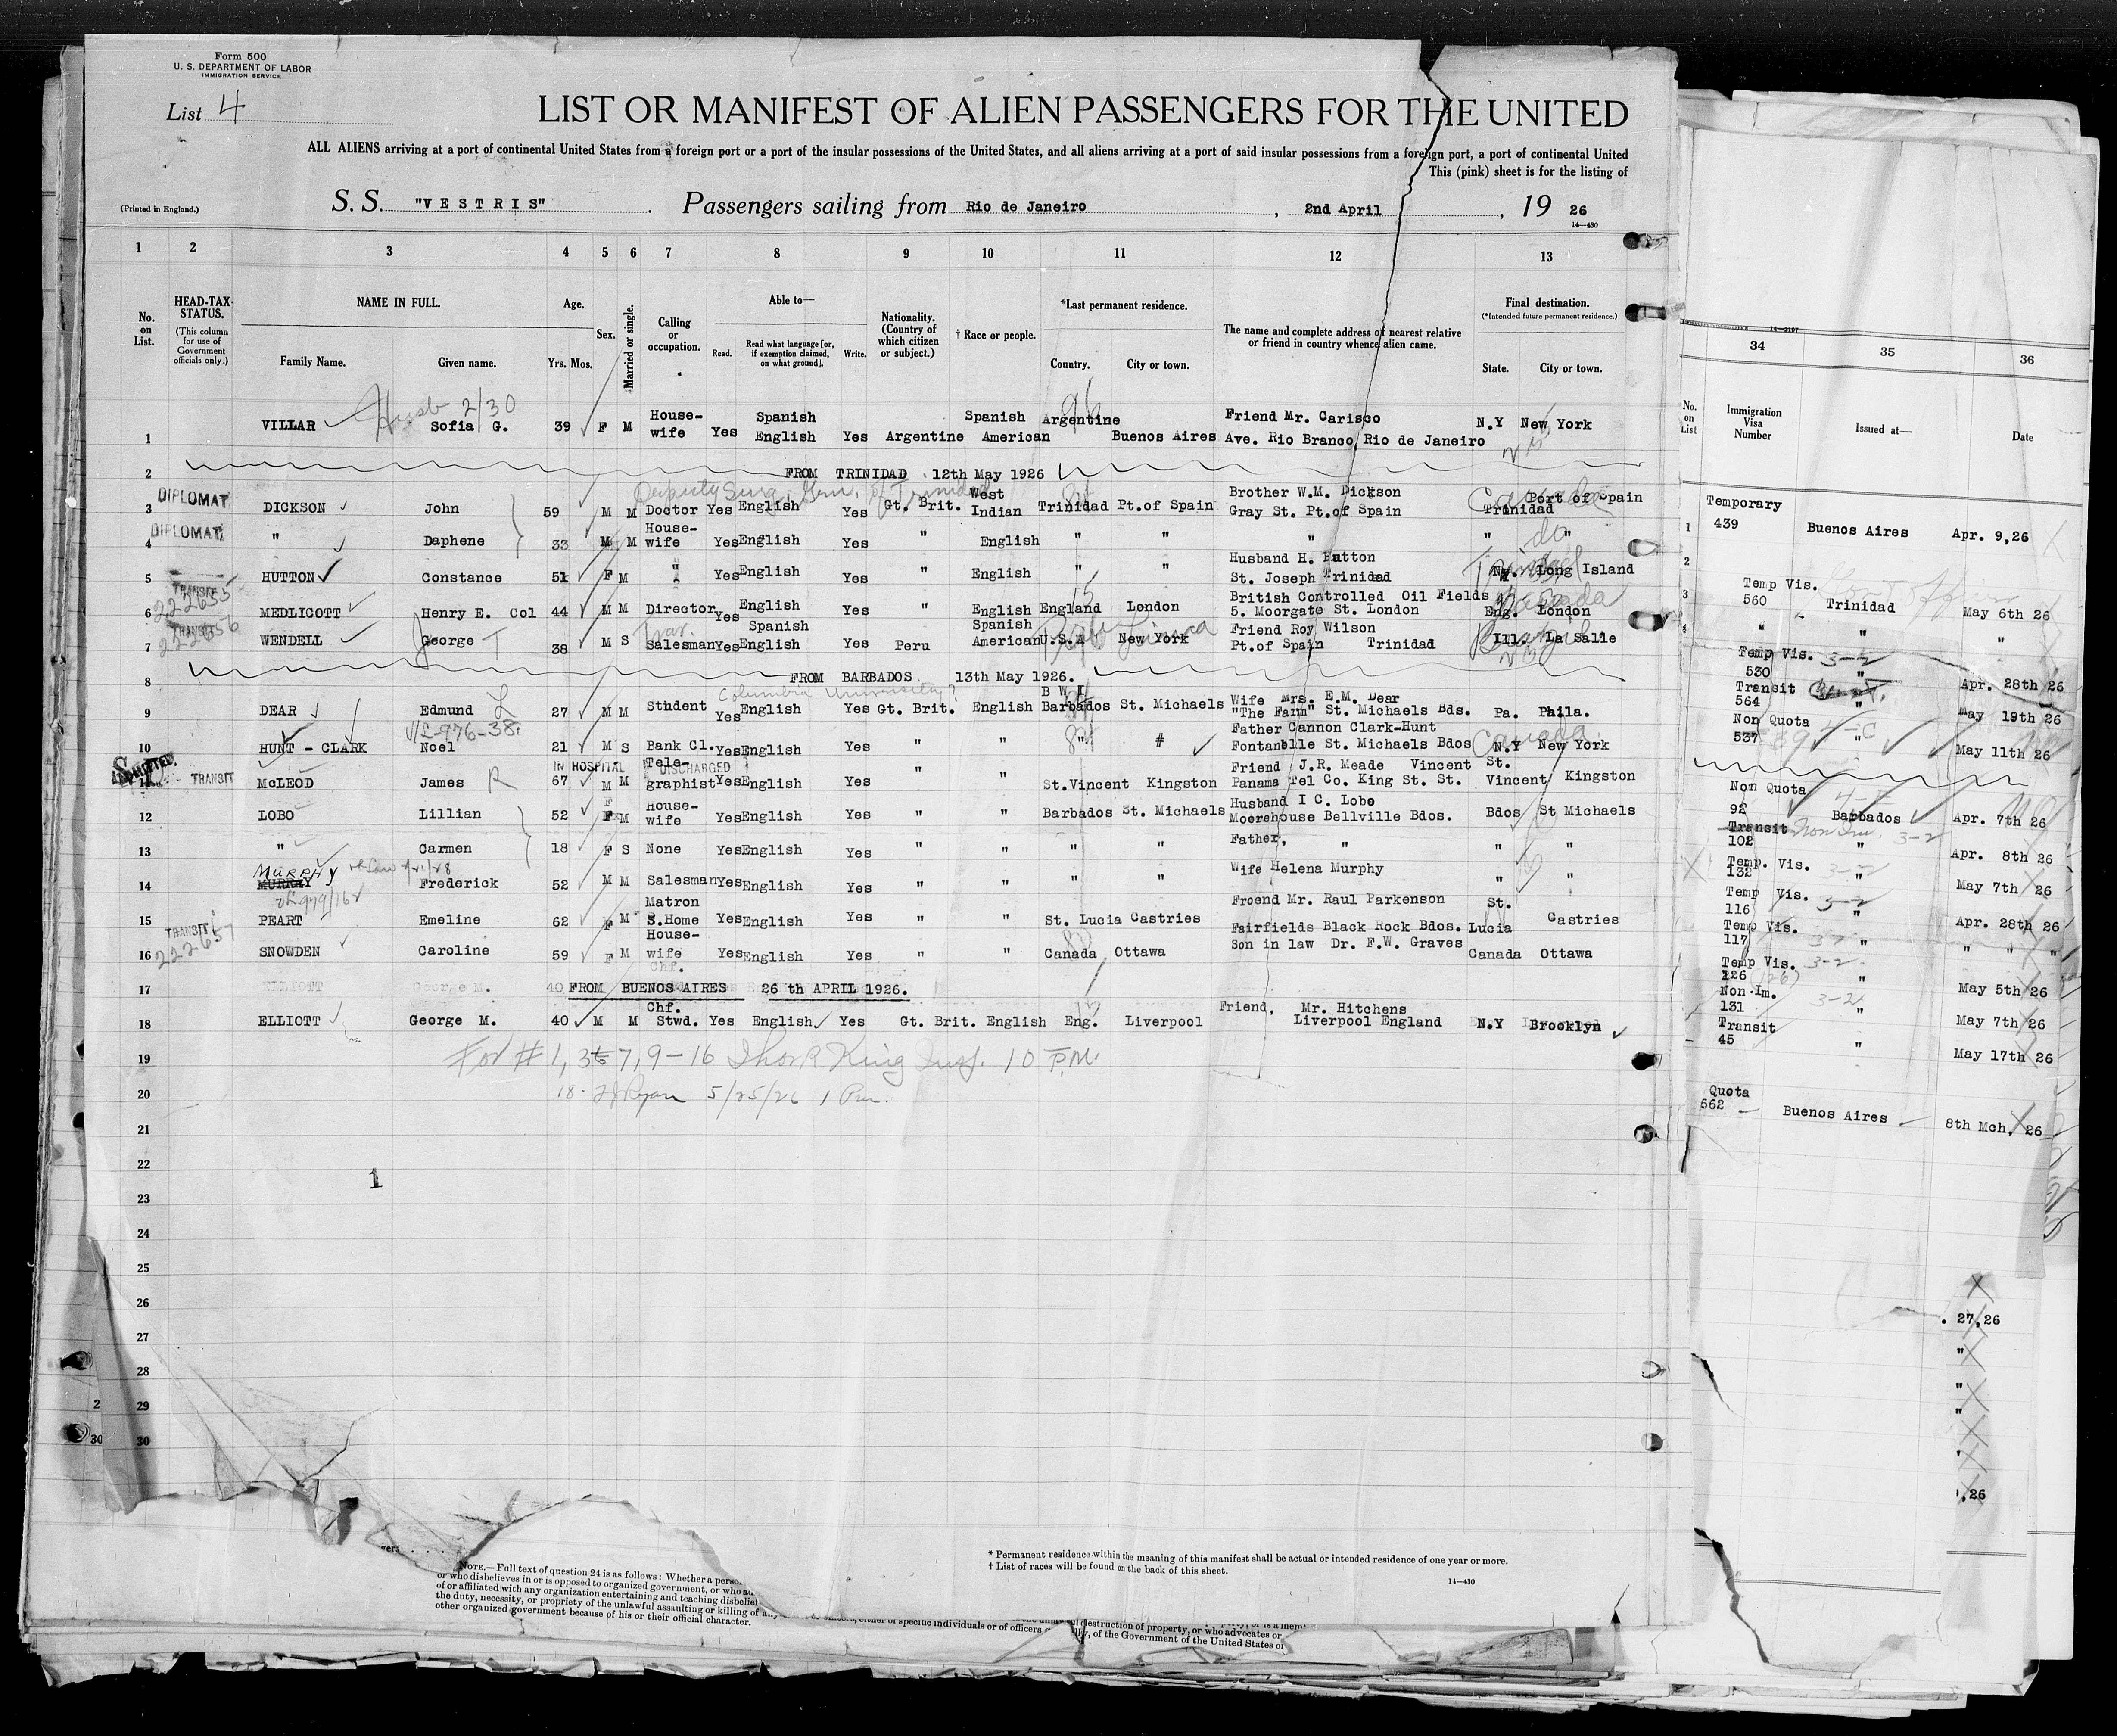 Form 500
U. S. DEPARTMENT OF LABOR
IMMIGRATION SERVICE
List 4
LIST OR MANIFEST OF ALIEN PASSENGERS FOR THE UNITED
ALL ALIENS arriving at a port of continental United States from a foreign port or a port of the insular possessions of the United States, and all aliens arriving at a port of said insular possessions from a foreign port, a port of continental United
This (pink) sheet is for the listing of
(Printed in England.)
S. S. "VESTRIS" Passengers sailing from Rio de Janeiro, 2nd April, 19 26
14—430
1 2 3 4 5 6 7 8 9 10 11 12 13
No. on List.
HEAD-TAX STATUS.
(This column for use of Government officials only.)
NAME IN FULL.
Family Name. Given name.
Age.
Yrs. Mos.
Sex.
Married or single.
Calling or occupation.
Able to—
Read. Read what language [or, if exemption claimed, on what ground]. Write.
Nationality. (Country of which citizen or subject.)
† Race or people.
*Last permanent residence.
Country. City or town.
The name and complete address of nearest relative or friend in country whence alien came.
Final destination.
(*Intended future permanent residence.)
State. City or town.
1 VILLAR Husb 2/30 Sofia G. 39 F M House-wife Yes Spanish English Yes Argentine Spanish American Argentine Buenos Aires Friend Mr. Carisco Ave. Rio Branco, Rio de Janeiro N.Y New York
2 FROM TRINIDAD 12th May 1926
Deputy Surg. Gen. of Trinidad
3 DIPLOMAT DICKSON John 59 M M Doctor Yes English Yes Gt. Brit. West Indian Trinidad Pt.of Spain Brother W.M. Dickson Gray St. Pt.of Spain Trinidad Port of Spain Canada
4 DIPLOMAT " Daphene 33 M M House-wife Yes English Yes " English " " " " " do
5 HUTTON Constance 51 F M " Yes English Yes " English " " Husband H. Hutton St. Joseph Trinidad Long Island Trinidad
6 TRANSIT 222655 MEDLICOTT Henry E. Col 44 M M Director Yes English Yes " English England London British Controlled Oil Fields 5. Moorgate St. London Eng. London Canada
7 TRANSIT 222656 WENDELL George T 38 M S Trav. Salesman Yes Spanish English Yes Peru Spanish American U.S.A New York Peru Lima Friend Roy Wilson Pt.of Spain Trinidad Ill. La Salle
8 FROM BARBADOS 13th May 1926.
Columbia University?
9 DEAR Edmund L 27 M M Sthdent Yes English Yes Gt. Brit. English B W I Barbados St. Michaels Wife Mrs. E.M. Dear "The Farm" St. Michaels Bds. Pa. Phila.
10 HUNT - CLARK Noel 21 M S Bank Cl. Yes English Yes " " " # Father Cannon Clark-Hunt Fontanblle St. Michaels Bdos N.Y New York Canada
IN HOSPITAL DISCHARGED
11 ADMITTED TRANSIT McLEOD James R 67 M M Tele-graphist Yes English Yes " " St.Vincent Kingston Friend J.R. Meade Vincent St. Panama Tel Co. King St. St. Vincent Kingston
12 LOBO Lillian 52 F M House-wife Yes English Yes " " Barbados St. Michaels Husband I C. Lobo Moorehouse Bellville Bdos. Bdos St Michaels
13 " Carmen 18 F S None Yes English Yes " " " " Father, " " "
14 MURPHY MURRAY Frederick 52 M M Salesman Yes English Yes " " " " Wife Helena Murphy " "
15 PEART Emeline 62 F M Matron S.Home Yes English Yes " " St. Lucia Castries Froend Mr. Raul Parkenson Fairfields Black Rock Bdos. St. Lucia Castries
16 TRANSIT 222657 SNOWDEN Caroline 59 F M House-wife Yes English Yes " " Canada Ottawa Son in law Dr. F.W. Graves Canada Ottawa
17 ELLIOTT George M. 40 Chf. FROM BUENOS AIRES 26 th APRIL 1926.
18 ELLIOTT George M. 40 M M Chf. Stwd. Yes English Yes Gt. Brit. English Eng. Liverpool Friend, Mr. Hitchens Liverpool England N.Y Brooklyn
19 For # 1, 3 to 7, 9-16 King Insp. 10 P.M.
20 18. Ryan 5/25/26 1 Pm.
21
22
23 1
24
25
26
27
28
2 29
30 30
34 35 36
No. on List
Immigration Visa Number
Issued at—
Date
Temporary
1 439 Buenos Aires Apr. 9,26
2
Temp Vis.
3 560 Trinidad May 6th 26
4 " " "
Temp Vis. 3-2
530 " Apr. 28th 26
Transit
564 " May 19th 26
Non Quota 4-C
537 " May 11th 26
Non Quota
92 Barbados Apr. 7th 26
Transit 3-2
102 " Apr. 8th 26
Temp. Vis. 3-2
132 " May 7th 26
Temp Vis. 3-2
116 " Apr. 28th 26
Temp Vis.
117 " " " "
Temp Vis. 3-2
126 " May 5th 26
Non-Im. 3-2
131 " May 7th 26
Transit
45 " May 17th 26
Quota
562 Buenos Aires 8th Mch, 26
. 27,26
"
"
"
,26
* Permanent residence within the meaning of this manifest shall be actual or intended residence of one year or more.
† List of races will be found on the back of this sheet.
14—430
NOTE.—Full text of question 24 is as follows: Whether a perso
or who disbelieves in or is opposed to organized government, or who
of or affiliated with any organization entertaining and teaching disbelief
the duty, necessity, or propriety of the unlawful assaulting or killing of any
other organized government because of his or their official character.
either of specific individuals or of officers
destruction of property, or who advocates or
of the Government of the United States or